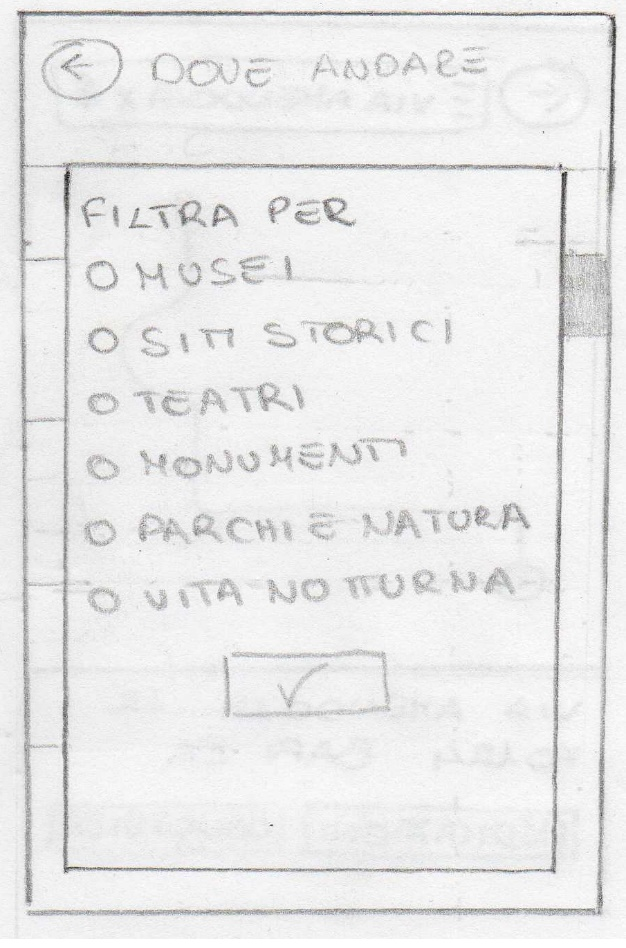 DOVE ANDARE
FILTRA PER
MUSEI
SITI STORICI
TEATRI
MONUMENTI
PARCHI E NATURA
VITA NOTTURNA